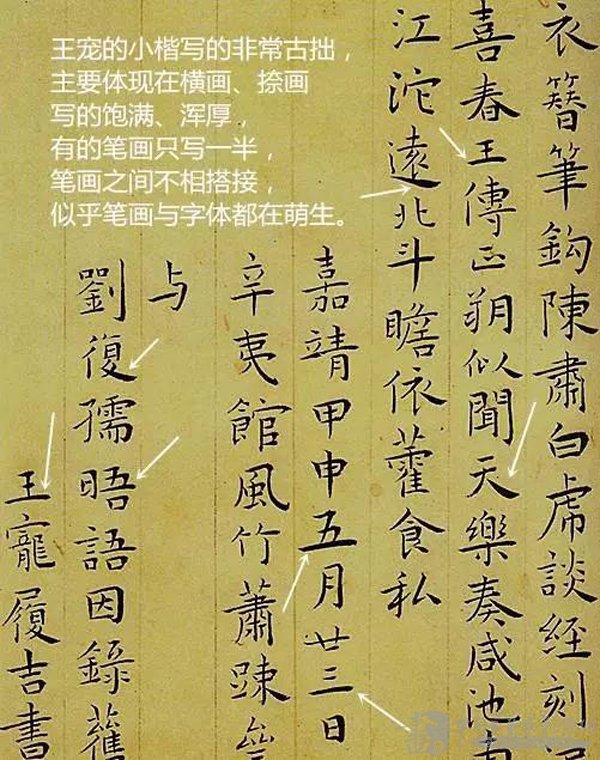 王宠的小楷写的非常古拙，
主要体现在横画、捺画
写的饱满、浑厚，
有的笔画只写一半，
笔画之间不相搭接，
似乎笔画与字体都在萌生。
衣簪筆鈎陳肅白虎談経刻
喜春王傳正朔似聞天樂奏咸池
江沱遠北斗瞻依藿食私
嘉靖甲申五月廿三日
辛夷館風竹蕭踈
与
劉復孺晤語因錄舊
王寵履吉書